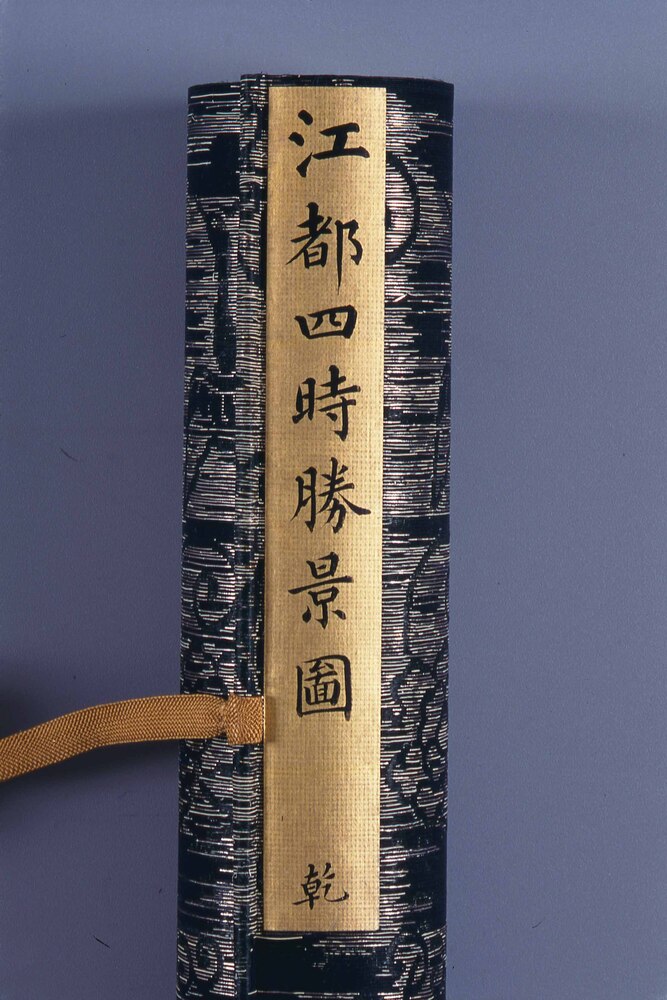 江都四時勝景圖 乾